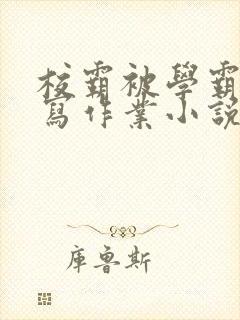 校霸被學霸
寫作業小說
庫魯斯